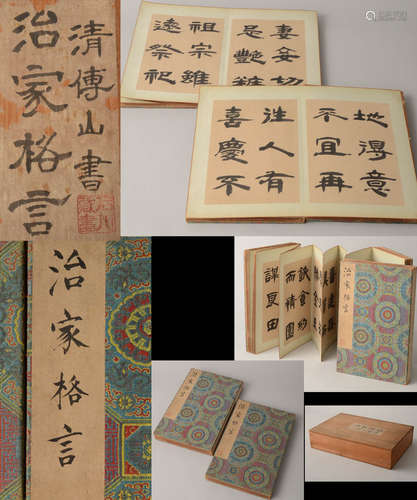 清傅山書
治家格言
妻妾切
忌艷粧
祖宗雖
遠祭祀
地得意
不宜再
往人有
喜慶不
治家格言
治家格言
飲食約
而精園
謀良田
治家格言
治家格言